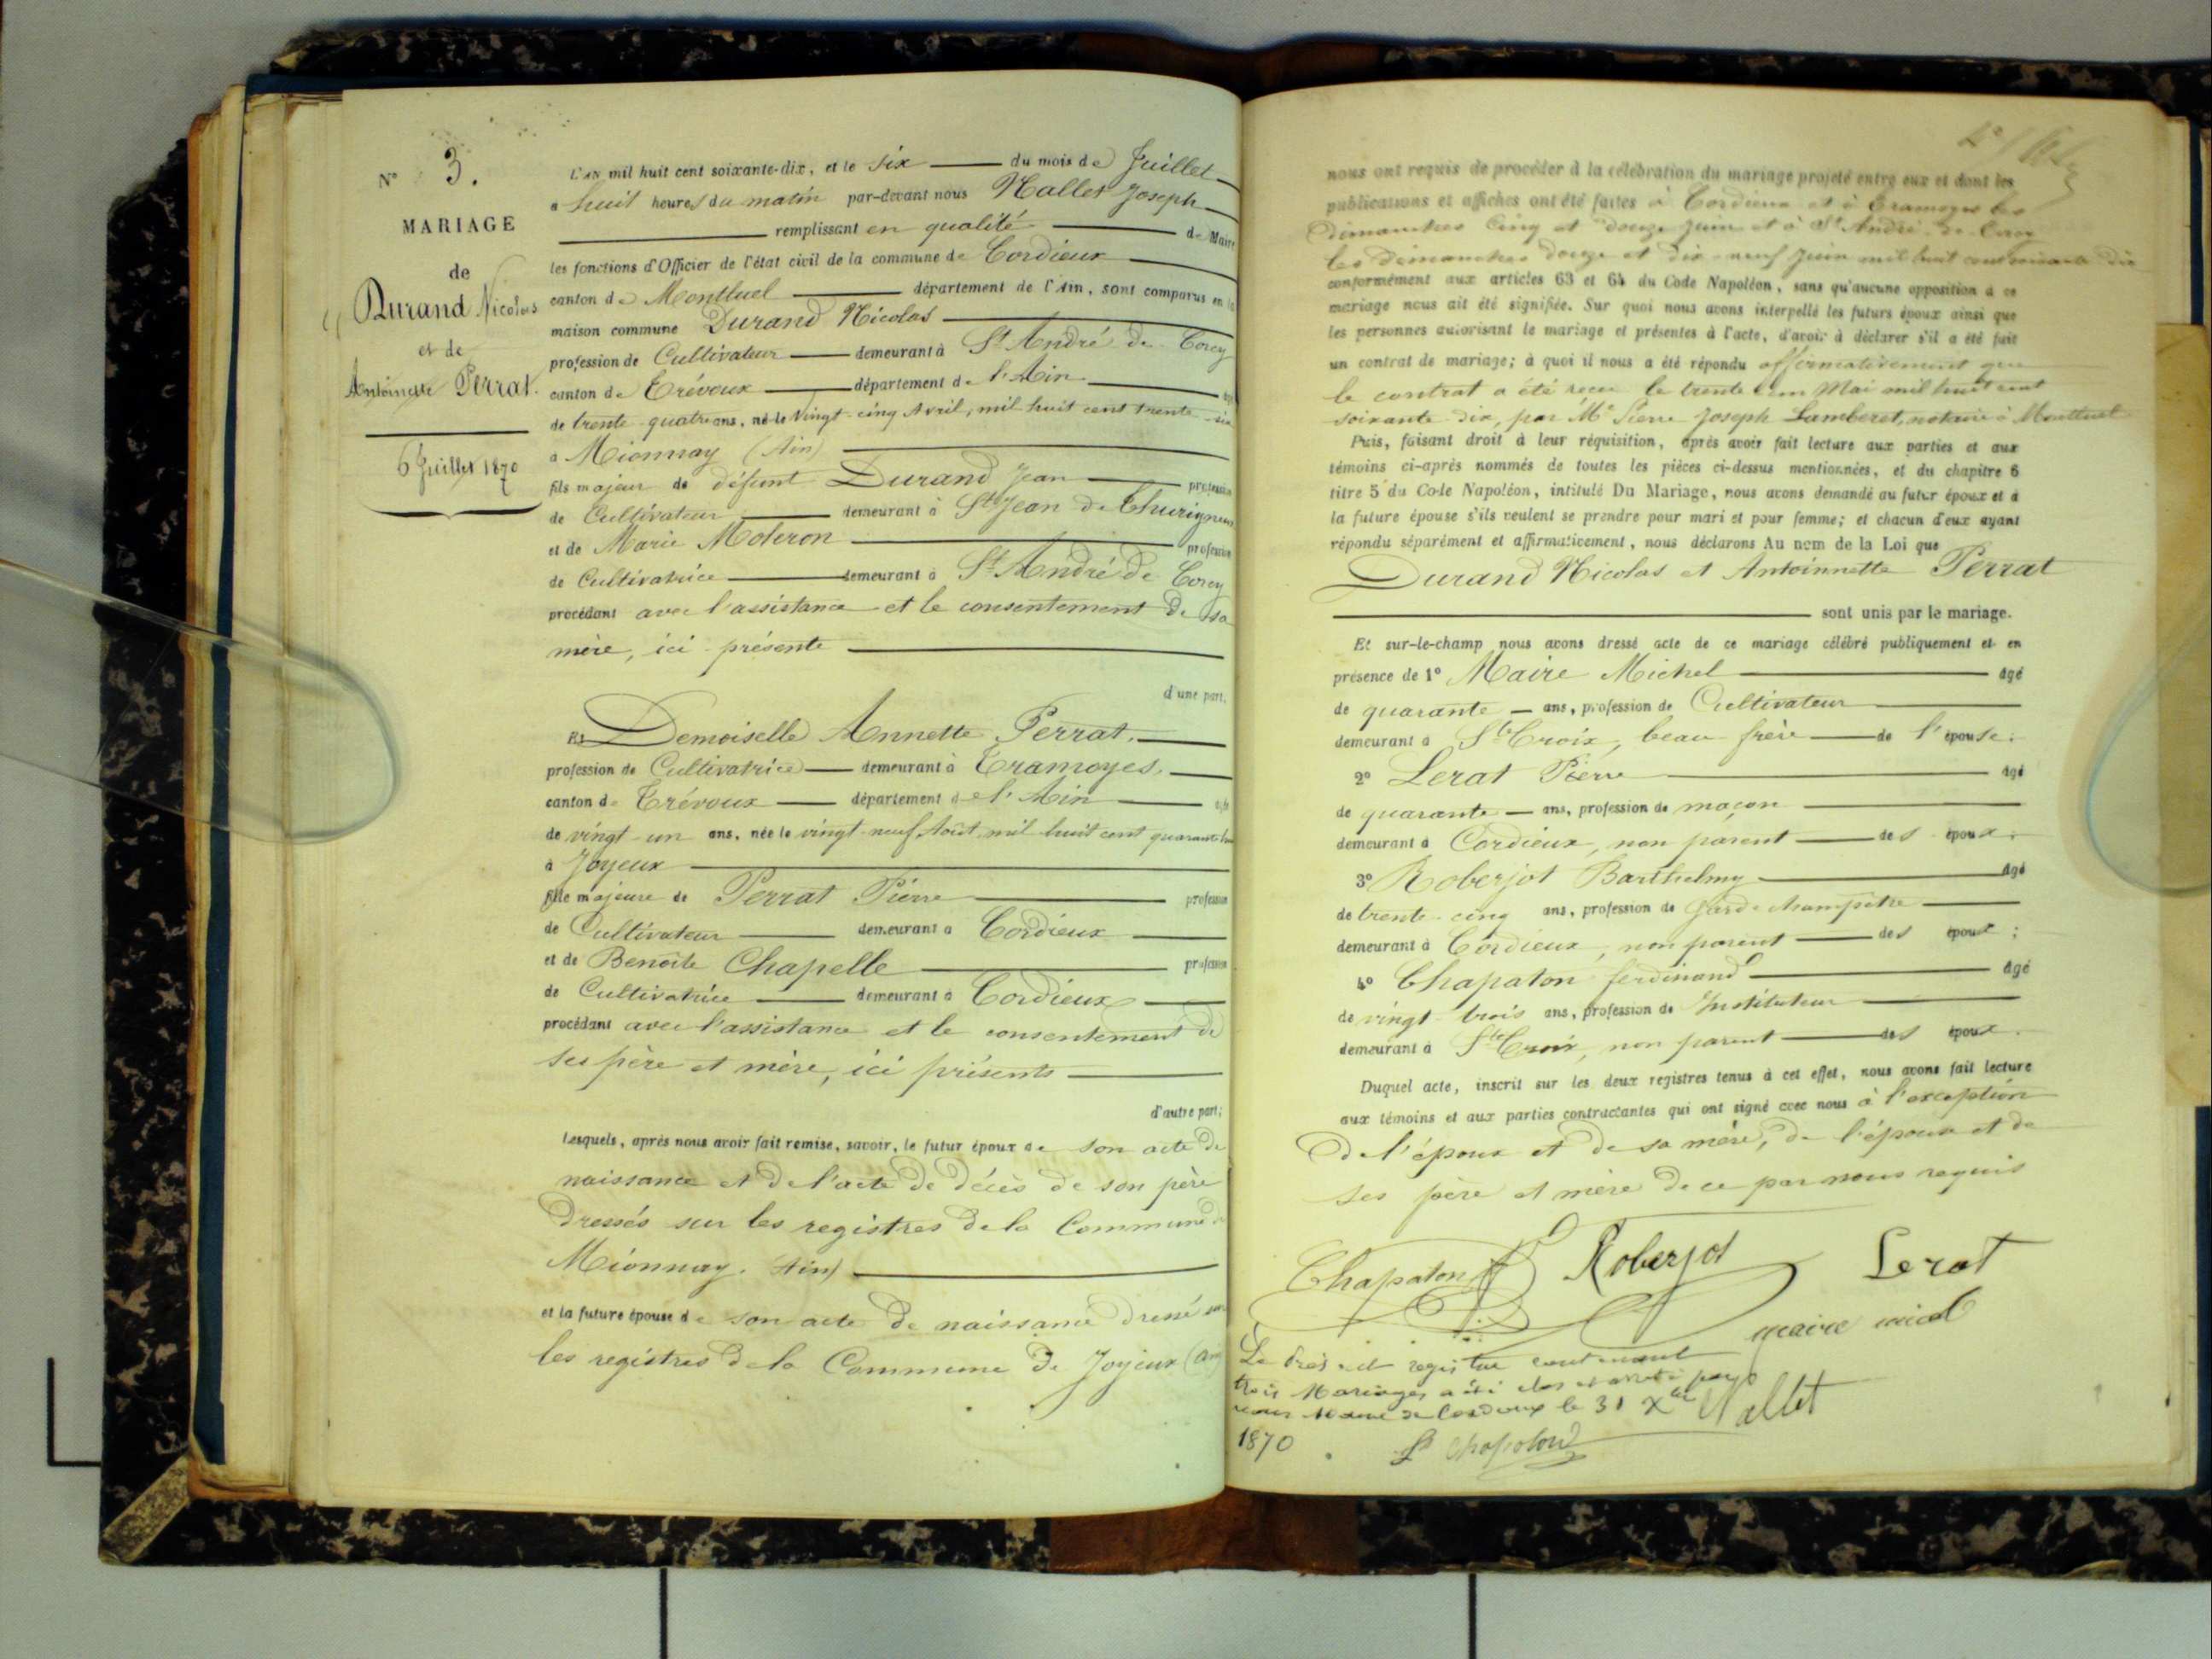 N° 3.
MARIAGE
de
Durand Nicolas
et de
Antoinette Perrat.
6 Juillet 1870
L'AN mil huit cent soixante-dix, et le six du mois de Juillet
a huit heures du matin par-devant nous Nallet Joseph
remplissant en qualité de Maire
les fonctions d'Officier de l'état civil de la commune de Cordieux
canton de Montluel département de l'Ain, sont comparus en la
maison commune Durand Nicolas
profession de Cultivateur demeurant à St André de Corcy
canton de Trévoux département de l'Ain
de trente-quatre ans, né le vingt-cinq Avril, mil huit cent trente-six
a Mionnay (Ain)
fils majeur de défunt Durand Jean profession
de Cultivateur demeurant à St Jean de Thurigneux
et de Marie Moleron profession
de Cultivatrice demeurant à St André de Corcy
procédant avec l'assistance et le consentement de sa
mère, ici présente
d'une part.
Et Demoiselle Annette Perrat.
profession de Cultivatrice demeurant à Tramoyes.
canton de Trévoux département de l'Ain
de vingt-un ans, née le vingt-neuf Août mil huit cent quarante
à Joyeux
fille majeure de Perrat Pierre profession
de Cultivateur demeurant a Cordieux
et de Benoîte Chapelle profession
de Cultivatrice demeurant à Cordieux
procédant avec l'assistance et le consentement de
ses père et mère, ici présents
d'autre part;
Lesquels, après nous avoir fait remise, savoir, le futur époux de son acte de
naissance et de l'acte de décès de son père
dressés sur les registres de la Commune de
Mionnay. (Ain)
et la future épouse de son acte de naissance dressé sur
les registres de la Commune de Joyeux (Ain)
nous ont requis de procéder à la célébration du mariage projeté entre eux et dont les
publications et affiches ont été faites à Cordieux et à Tramoyes les
dimanches cinq et douze juin et à St André de Corcy
les dimanches douze et dix-neuf juin mil huit cent soixante dix
conformément aux articles 63 et 64 du Code Napoléon, sans qu'aucune opposition a ce
mariage nous ait été signifiée. Sur quoi nous avons interpellé les futurs époux ainsi que
les personnes autorisant le mariage et présentes à l'acte, d'avoir à déclarer s'il a été fait
un contrat de mariage; à quoi il nous a été répondu affirmativement que
le contrat a été reçu le trente un Mai mil huit cent
soixante dix, par Me Pierre Joseph Lamberet, notaire à Montluel
Puis, faisant droit à leur réquisition, après avoir fait lecture aux parties et aux
témoins ci-après nommés de toutes les pièces ci-dessus mentionnées, et du chapitre 6
titre 5 du Code Napoléon, intitulé Du Mariage, nous avons demandé au futur époux et à
la future épouse s'ils veulent se prendre pour mari et pour femme; et chacun d'eux ayant
répondu séparément et affirmativement, nous déclarons Au nom de la Loi que
Durand Nicolas et Antoinnette Perrat
sont unis par le mariage.
Et sur-le-champ nous avons dressé acte de ce mariage célébré publiquement et en
présence de 1° Maire Michel âgé
de quarante ans, profession de Cultivateur
demeurant a Ste Croix, beau-frère de l'épouse.
2° Lerat Pierre âgé
de quarante ans, profession de maçon
demeurant à Cordieux, non parent des époux.
3° Roberjot Barthelmy âgé
de trente-cinq ans, profession de Garde champêtre
demeurant à Cordieux, non parent des époux;
4° Chapaton ferdinand âgé
de vingt-trois ans, profession de Instituteur
demeurant à Ste Croix, non parent des époux.
Duquel acte, inscrit sur les deux registres tenus à cet effet, nous avons fait lecture
aux témoins et aux parties contractantes qui ont signé avec nous à l'exception
de l'époux et de sa mère, de l'épouse et de
ses père et mère de ce par nous requis
Chapaton Roberjot Lerat
maire micel
Le présent registre contenant
trois Mariages a été clos et arrêté par
nous Maire de Cordieux le 31 Xbre Nallet
1870